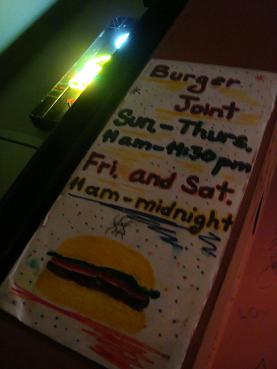 Burger
Joint
Sun - Thurs.
11am - 11:30pm
Fri. and Sat.
11am - midnight